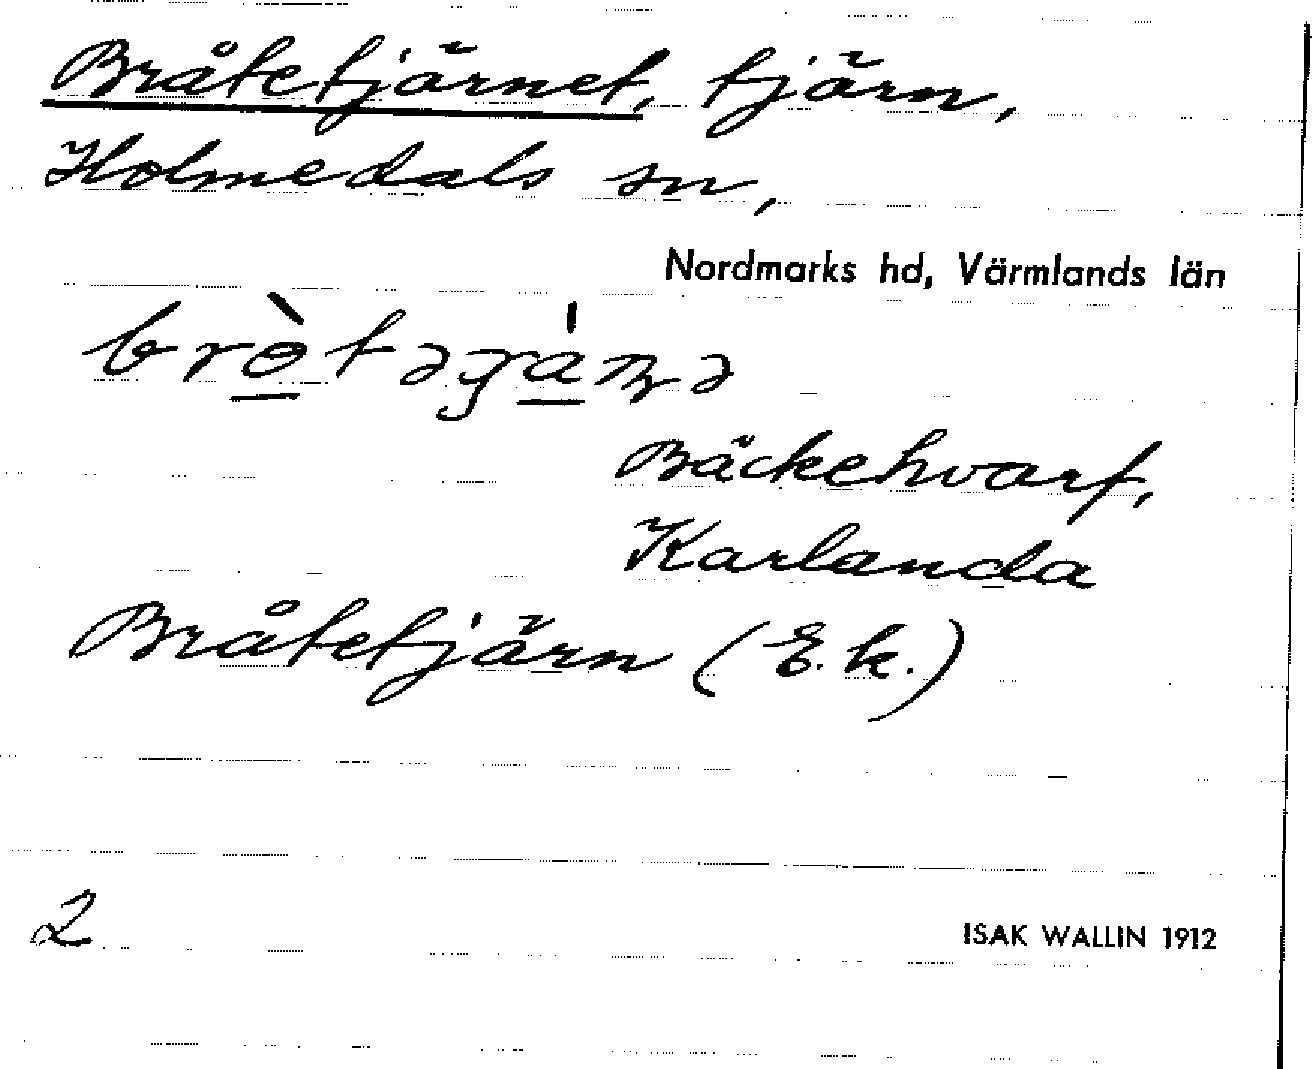 Bråtetjärnet, tjärn,
Holmedals sn,
Nordmarks hd, Värmlands län
Bäckehvarf,
Karlanda
Bråtetjärn (E.k.)
2
ISAK WALLIN 1912